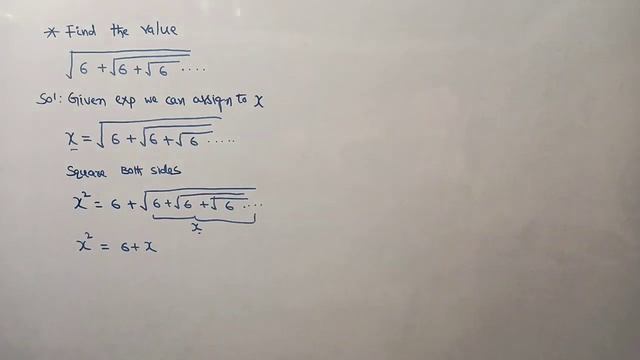 * Find the value
√6 + √6 + √6 ....
Sol: Given exp we can assign to x
x = √6 + √6 + √6 .....
Square Both sides
x² = 6 + √6 + √6 + √6 ....
x
x² = 6 + x